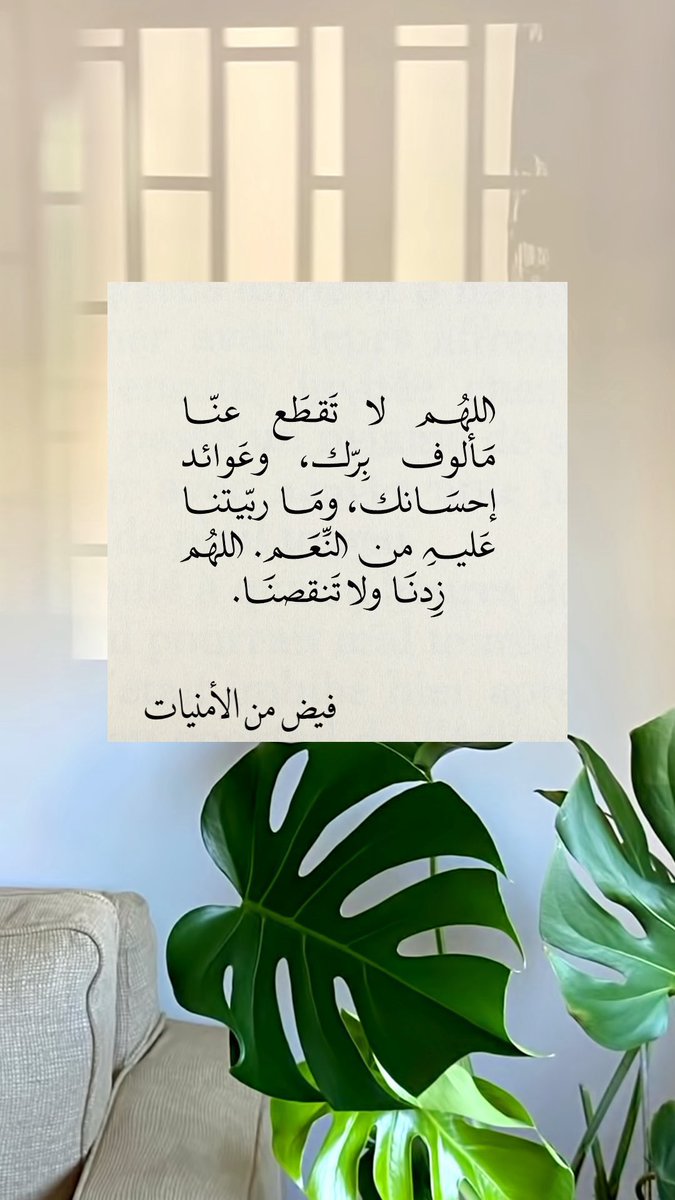 اللهُم لا تَقطَع عنّا
مَألوف بِرّك، وعَوائد
إحسَانك، ومَا ربّيتنا
عَليهِ من النِّعَم. اللهُم
زِدنَا ولا تَنقصنَا.
فيض من الأمنيات